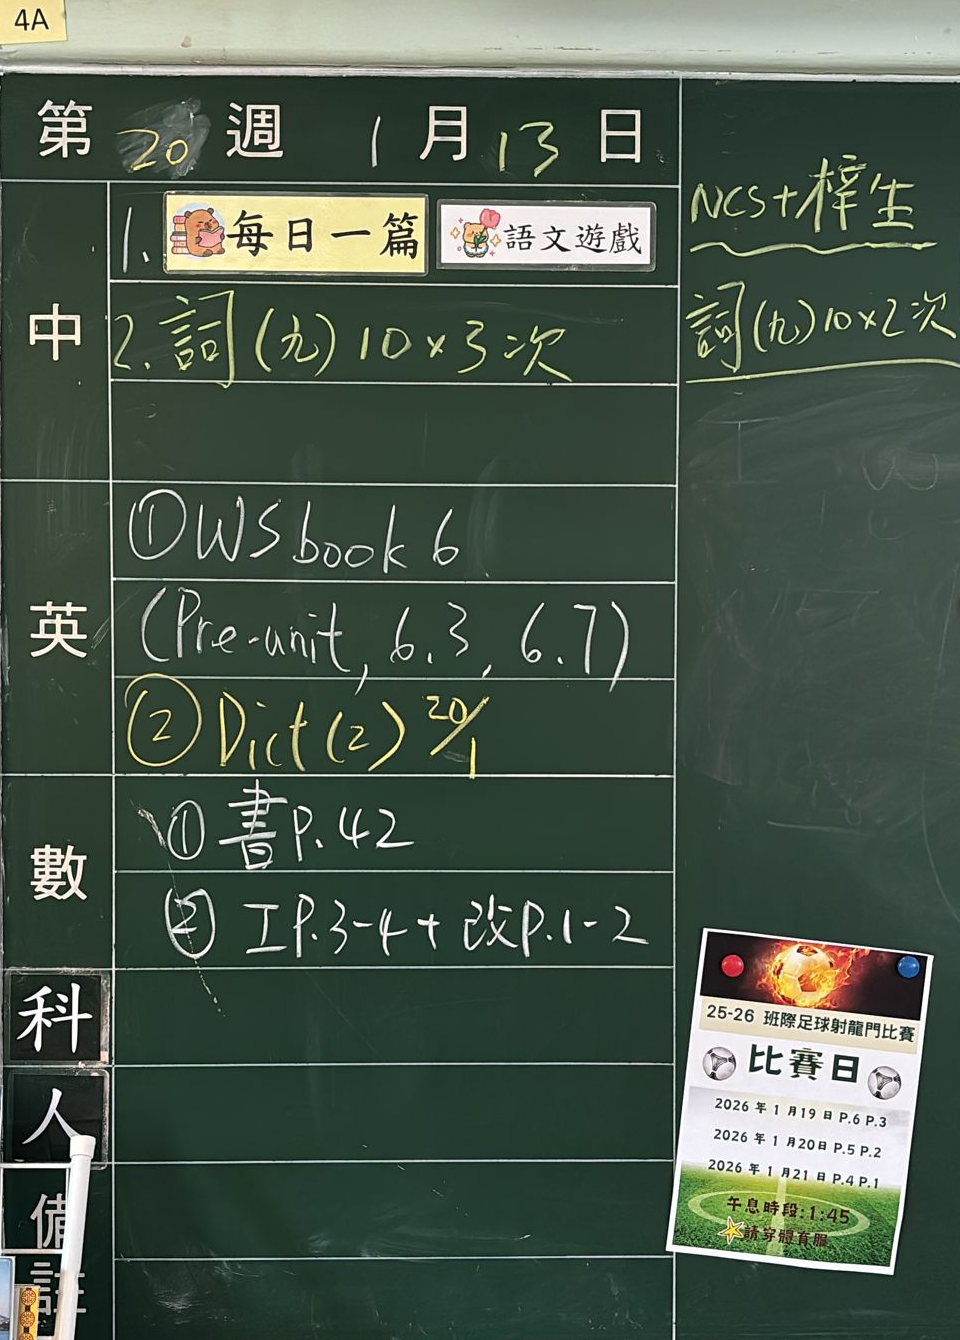 4A
第 20 週 1 月 13 日
中
1. 每日一篇 語文遊戲
2. 詞(九) 10 x 3 次
英
① WS book 6
(Pre-unit, 6.3, 6.7)
② Dict (2) 20/1
數
① 書 P.42
② 工 P.3-4 + 改 P.1-2
科
人
備註
NCS + 梓生
詞(九) 10 x 2 次
25-26 班際足球射龍門比賽
比賽日
2026 年 1 月19 日 P.6 P.3
2026 年 1 月20日 P.5 P.2
2026 年 1 月21 日 P.4 P.1
午息時段:1:45
請穿體育服